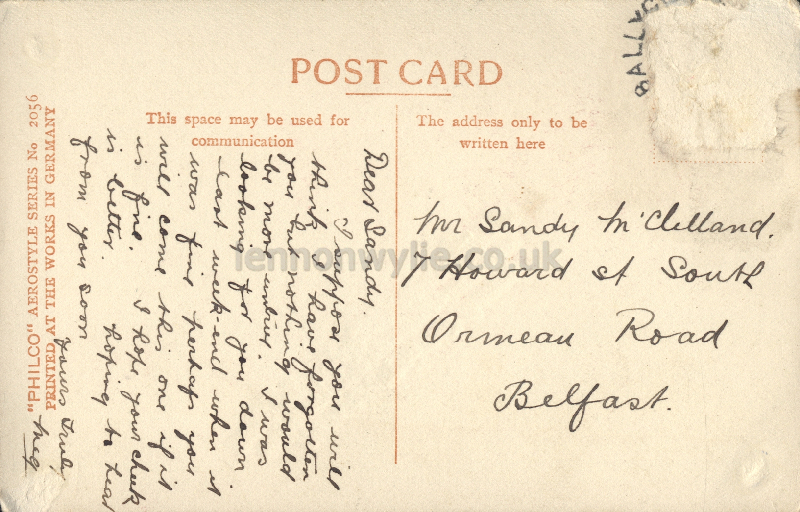 POST CARD
This space may be used for
communication
The address only to be
written here
"PHILCO" AEROSTYLE SERIES No 2056
PRINTED AT THE WORKS IN GERMANY
BALLYC
Dear Sandy.
I suppose you will
think I have forgotten
you but nothing would
be more untrue. I was
looking for you down
last week-end when it
was fine perhaps you
will come this one if it
is fine. I hope your cheek
is better. hoping to hear
from you soon
yours Truly
Meg
Mr Sandy McClelland.
7 Howard st South
Ormeau Road
Belfast.
lennonwylie.co.uk